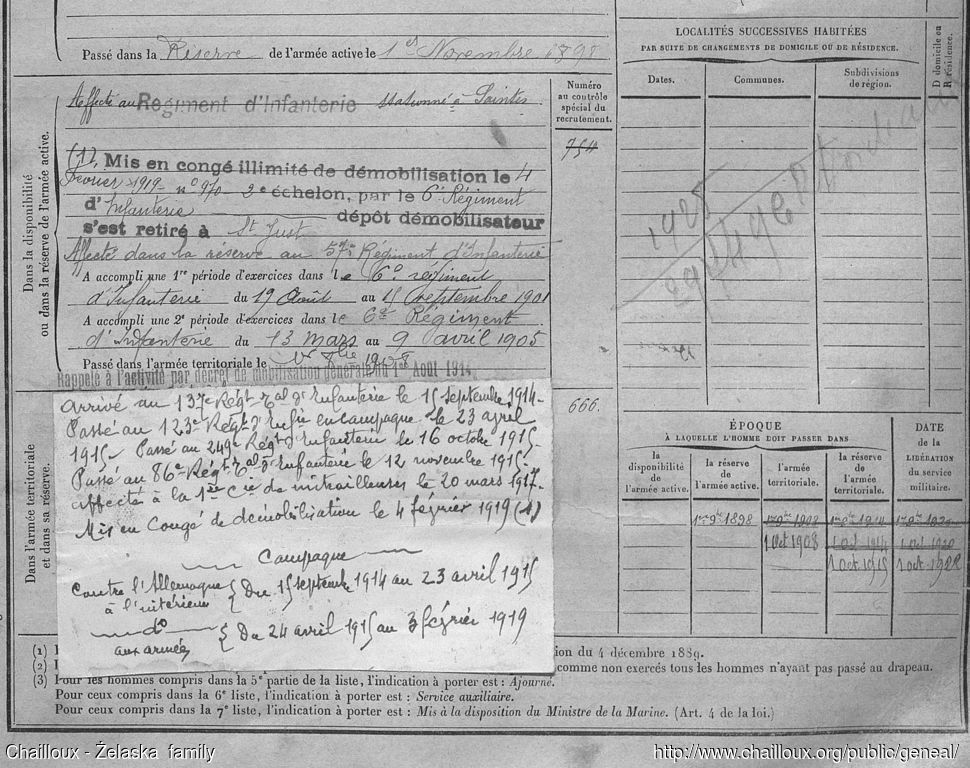 Passé dans la Réserve de l'armée active le 1er Novembre 1898
Affecté au Régiment d'Infanterie stationné à Saintes
Numéro
au contrôle
spécial du
recrutement.
754
(1) Mis en congé illimité de démobilisation le 4
Février 1919 n° 970 2e échelon, par le 6e Régiment
d'Infanterie dépôt démobilisateur
s'est retiré à St Just
Affecté dans la réserve au Régiment d'Infanterie
A accompli une 1re période d'exercices dans le 6e régiment
d'Infanterie du 19 Août au 15 septembre 1901
A accompli une 2e période d'exercices dans le 6e Régiment
d'Infanterie du 13 mars au 9 avril 1905
Passé dans l'armée territoriale le 1908
Rappelé à l'activité par décret de mobilisation générale du 1er Août 1914.
Dans la disponibilité
ou dans la réserve de l'armée active.
Dans l'armée territoriale
et dans sa réserve.
Arrivé au 137e Régt Tal d'Infanterie le 15 septembre 1914-
Passé au 123e Régt d'Infie en campagne le 23 avril
1915- Passé au 249e Régt d'Infanterie le 16 octobre 1915
Passé au 86e Régt Tal d'Infanterie le 12 novembre 1915.
affecté à la 1ère Cie de mitrailleuses le 20 mars 1917.
Mis en Congé de démobilisation le 4 février 1919 (1)
Campagne
Contre l'Allemagne { Du 15 septembre 1914 au 23 avril 1915
à l'intérieur
do { Du 24 avril 1915 au 3 février 1919
aux armées
666.
LOCALITÉS SUCCESSIVES HABITÉES
PAR SUITE DE CHANGEMENTS DE DOMICILE OU DE RÉSIDENCE.
Dates.
Communes.
Subdivisions
de région.
D domicile ou
R résidence.
1925
ÉPOQUE
À LAQUELLE L'HOMME DOIT PASSER DANS
la
disponibilité
de
l'armée active.
la réserve
de
l'armée active.
l'armée
territoriale.
la réserve
de
l'armée
territoriale.
DATE
de la
LIBÉRATION
du service
militaire.
1er 9bre 1898 1er 9bre 1908 1er 9bre 1914 1er 9bre 1920
1 Oct 1908 1 Oct 1914 1 Oct 1920
1 Oct 1915 1 oct 1922
(1) ion du 4 décembre 1889.
(2) comme non exercés tous les hommes n'ayant pas passé au drapeau.
(3) Pour les hommes compris dans la 5e partie de la liste, l'indication à porter est : Ajourné.
Pour ceux compris dans la 6e liste, l'indication à porter est : Service auxiliaire.
Pour ceux compris dans la 7e liste, l'indication à porter est : Mis à la disposition du Ministre de la Marine. (Art. 4 de la loi.)
Chailloux - Želaska family
http://www.chailloux.org/public/geneal/